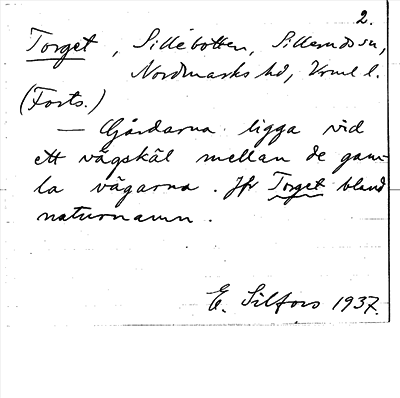 2.
Torget, Sillebotten, Silleruds sn,
Nordmarks hd, Vrml l.
(Forts.)
— Gårdarna ligga vid
ett vägskäl mellan de gam-
la vägarna. Jfr Torget bland
naturnamn.
E. Silfors 1937.